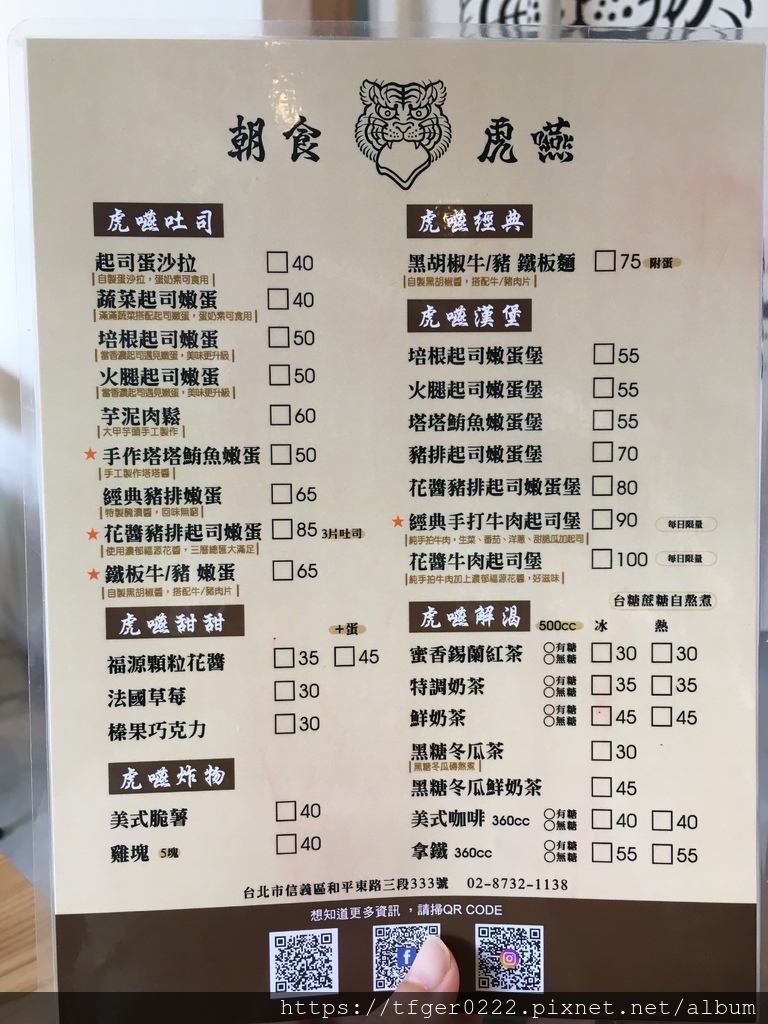 朝食 虎嚥
虎嚥吐司
起司蛋沙拉 40
自製蛋沙拉，蛋奶素可食用
蔬菜起司嫩蛋 40
滿滿蔬菜搭配起司嫩蛋，蛋奶素可食用
培根起司嫩蛋 50
當香濃起司遇見嫩蛋，美味更升級
火腿起司嫩蛋 50
當香濃起司遇見嫩蛋，美味更升級
芋泥肉鬆 60
大甲芋頭手工製作
★手作塔塔鮪魚嫩蛋 50
手工製作塔塔醬
經典豬排嫩蛋 65
特製醃漬醬，回味無窮
★花醬豬排起司嫩蛋 85 3片吐司
使用濃郁福源花醬，三層總匯大滿足
★鐵板牛/豬 嫩蛋 65
自製黑胡椒醬，搭配牛/豬肉片
虎嚥甜甜 +蛋
福源顆粒花醬 35 45
法國草莓 30
榛果巧克力 30
虎嚥炸物
美式脆薯 40
雞塊 5塊 40
虎嚥經典
黑胡椒牛/豬 鐵板麵 75 附蛋
自製黑胡椒醬，搭配牛/豬肉片
虎嚥漢堡
培根起司嫩蛋堡 55
火腿起司嫩蛋堡 55
塔塔鮪魚嫩蛋堡 55
豬排起司嫩蛋堡 70
花醬豬排起司嫩蛋堡 80
★經典手打牛肉起司堡 90 每日限量
純手拍牛肉，生菜、番茄、洋蔥、甜脆瓜加起司
花醬牛肉起司堡 100 每日限量
純手拍牛肉加上濃郁福源花醬，好滋味
台糖蔗糖自熬煮
虎嚥解渴 500cc 冰 熱
蜜香錫蘭紅茶 有糖 無糖 30 30
特調奶茶 有糖 無糖 35 35
鮮奶茶 有糖 無糖 45 45
黑糖冬瓜茶 30
黑糖冬瓜磚熬煮
黑糖冬瓜鮮奶茶 45
美式咖啡 360cc 有糖 無糖 40 40
拿鐵 360cc 有糖 無糖 55 55
台北市信義區和平東路三段333號 02-8732-1138
想知道更多資訊，請掃QR CODE
https://tfger0222.pixnet.net/album